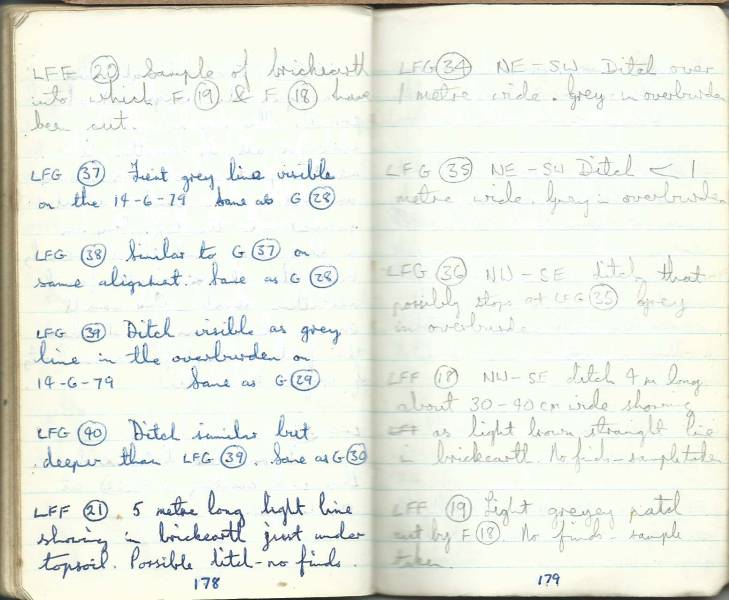 LFF (20) Sample of brickearth
into which F. (19) & F. (18) have
been cut.
LFG (37) Feint grey line visible
on the 14-6-79 Same as G (28)
LFG (38) Similar to G (37) on
same alignment. Same as G (28)
LFG (39) Ditch visible as grey
line in the overburden on
14-6-79 Same as G (29)
LFG (40) Ditch similar but
deeper than LFG (39). Same as G (30)
LFF (21) 5 metre long light line
showing in brickearth just under
topsoil. Possible ditch - no finds.
178
LFG (34) NE-SW Ditch over
1 metre wide. Grey in overburden
LFG (35) NE-SW Ditch < 1
metre wide. Grey in overburden
LFG (36) NW-SE ditch that
possibly stops at LFG (35) Grey
in overburden
LFF (18) NW-SE ditch 4 m long
about 30-40 cm wide showing
as light brown straight line
in brickearth. No finds - sample taken
LFF (19) Light greyey patch
cut by F (18). No finds - sample
taken.
179